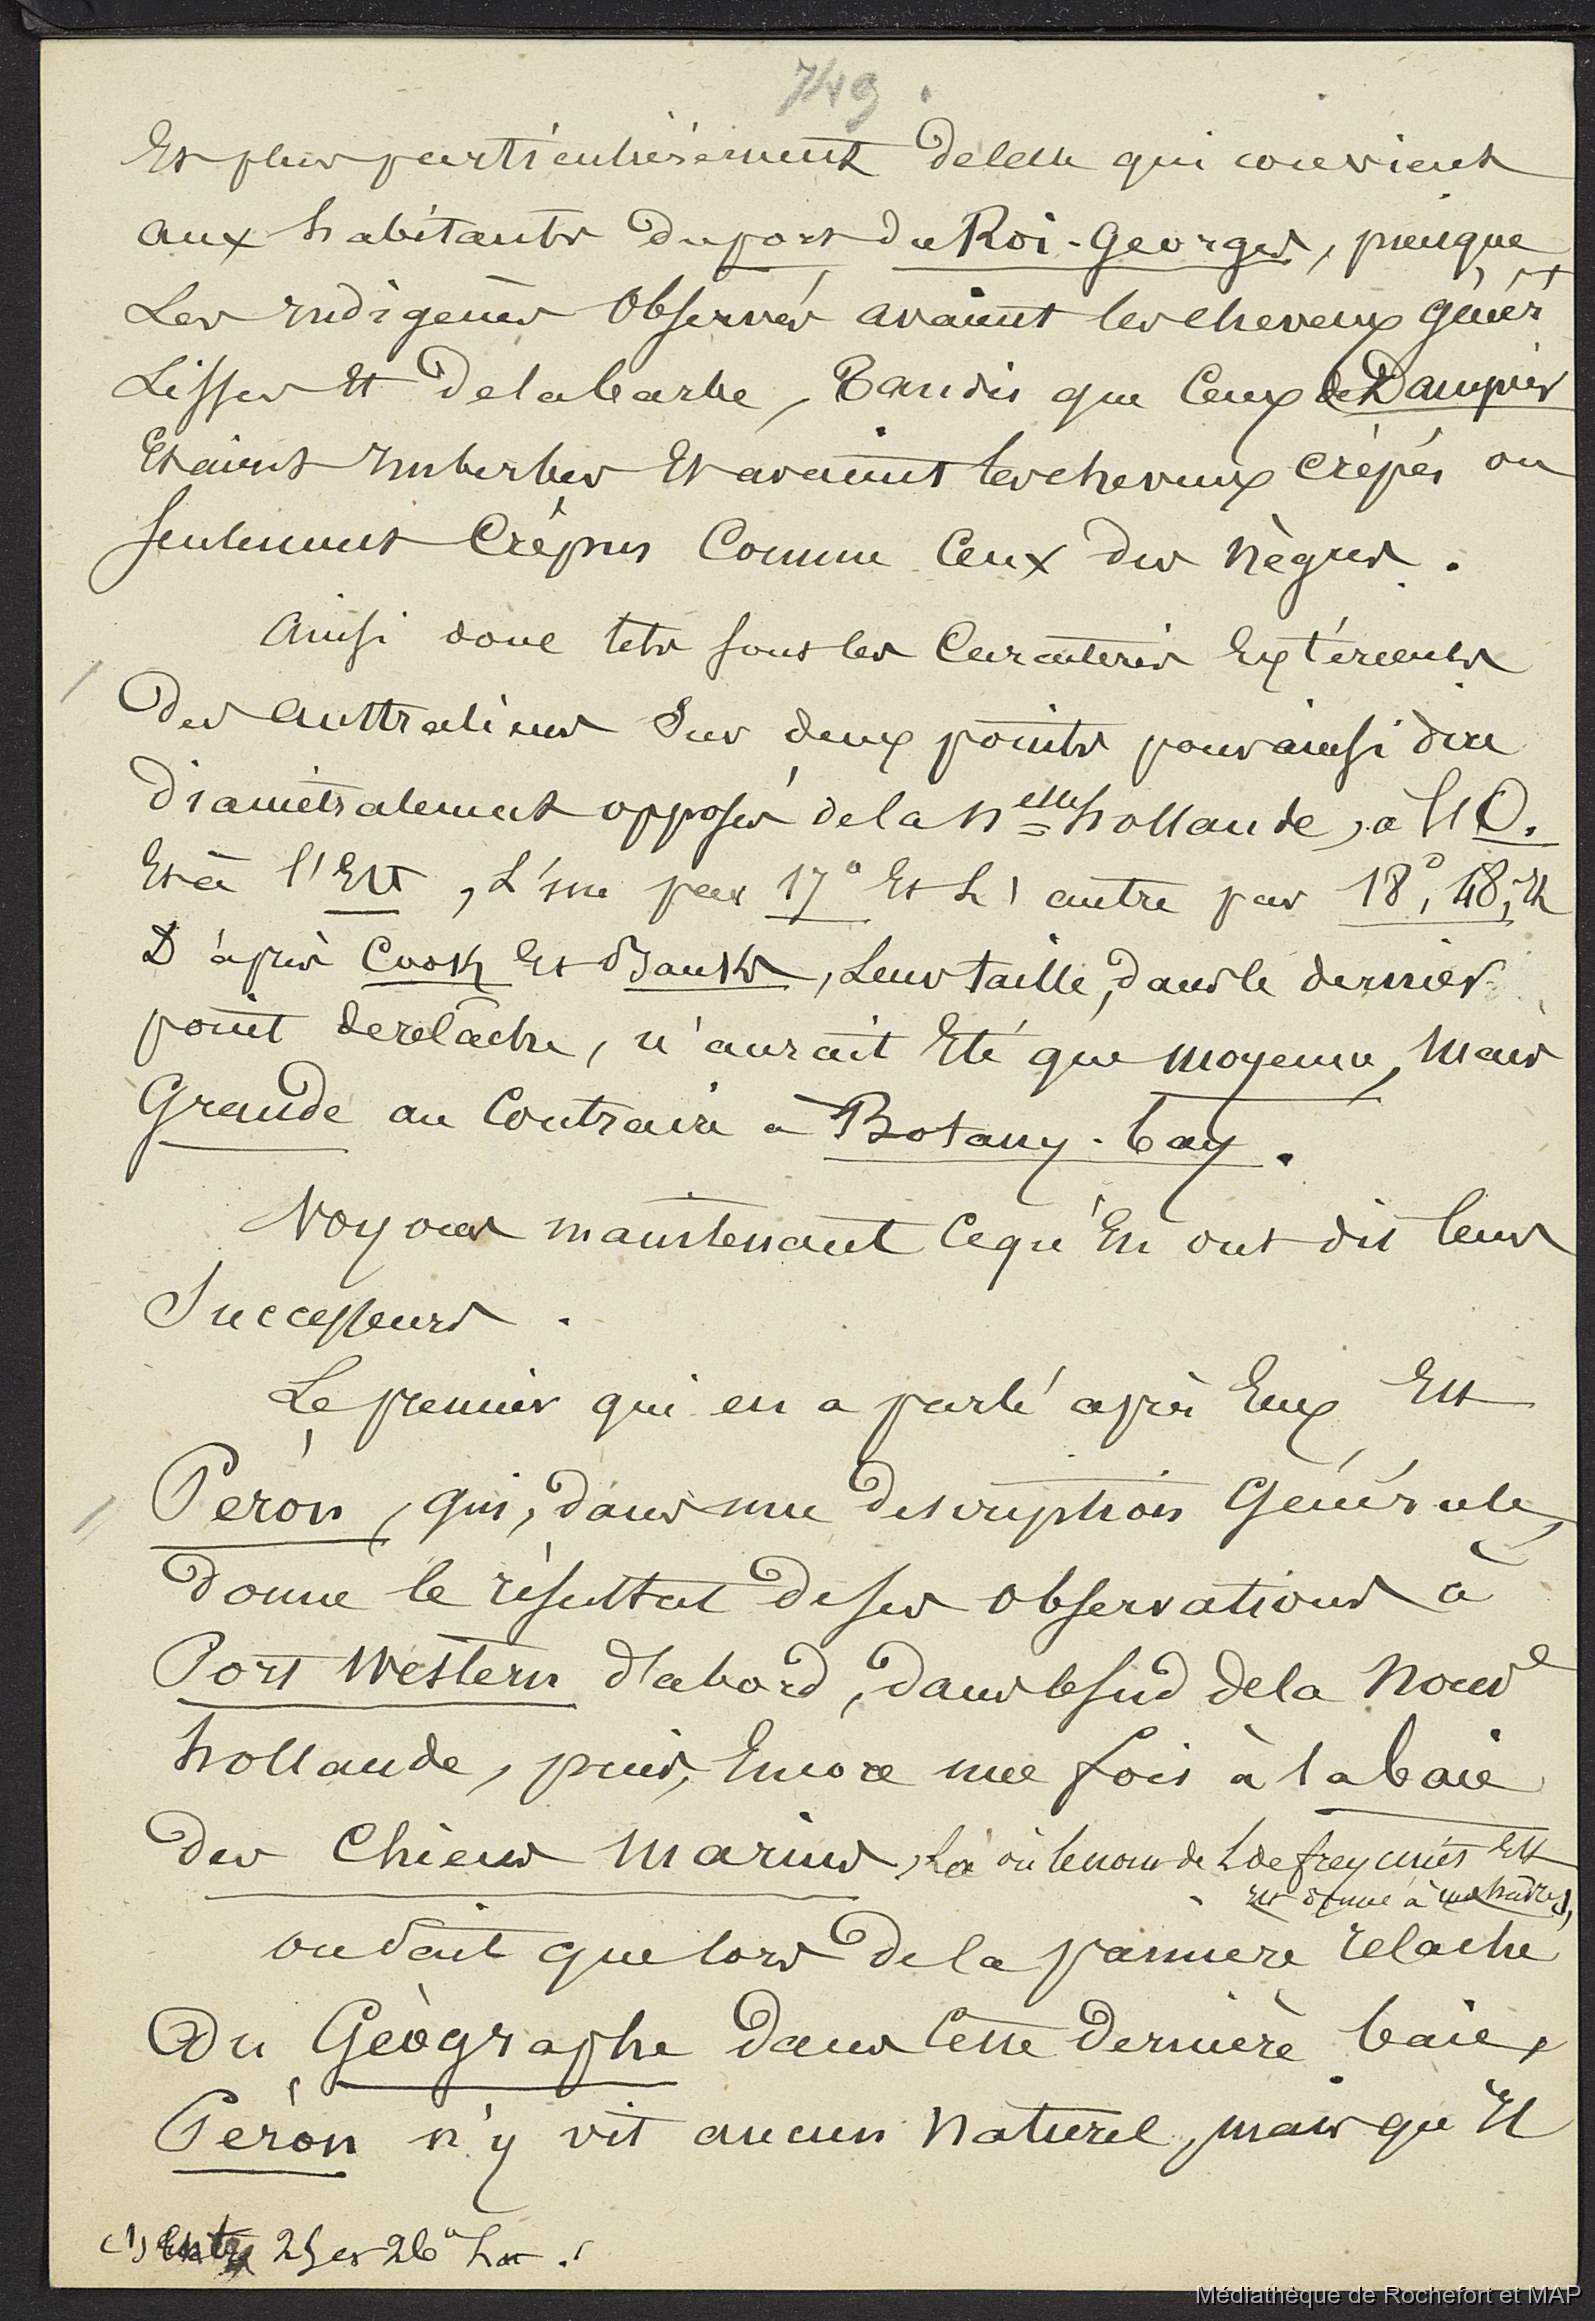 749.
Et plus particulièrement de celle qui convient
aux habitants du port du Roi-Georges, puisque
Les Indigènes Observés avaient les cheveux génér.t
Lisses Et de la barbe, Tandis que Ceux de Dampier
Etaient Imberbes Et avaient les cheveux Crépés ou
seulement Crépus Comme Ceux des nègres.
Ainsi donc tels sont les Caractères Extérieurs
Des Australiens Sur deux points pour ainsi dire
Diamétralement opposés de la Nelle hollande, à l'O.
Et à l'Est, L'une par 17° Et L'autre par 18°, 48,
D'après Cook Et Banks, Leur taille, dans le dernier
point de relâche, n'aurait Eté que moyenne, Mais
Grande au Contraire à Botany-bay.
Voyons maintenant Ce qu'En ont dit leurs
Successeurs.
Le premier qui en a parlé après Eux Est
Péron, qui, dans une description Générale,
donne le résultat de ses observations à
Port Western d'abord, dans le sud de la Nouve
hollande, puis, Encore une fois à la baie
des Chiens marins, Là où le nom de L de freycinet Est
Est donné à
on sait que lors de la première relache
Du Géographe dans Cette dernière baie,
Péron n'y vit aucun Naturel, mais qu'Il
(1) Entre 25 et 26° Lat.